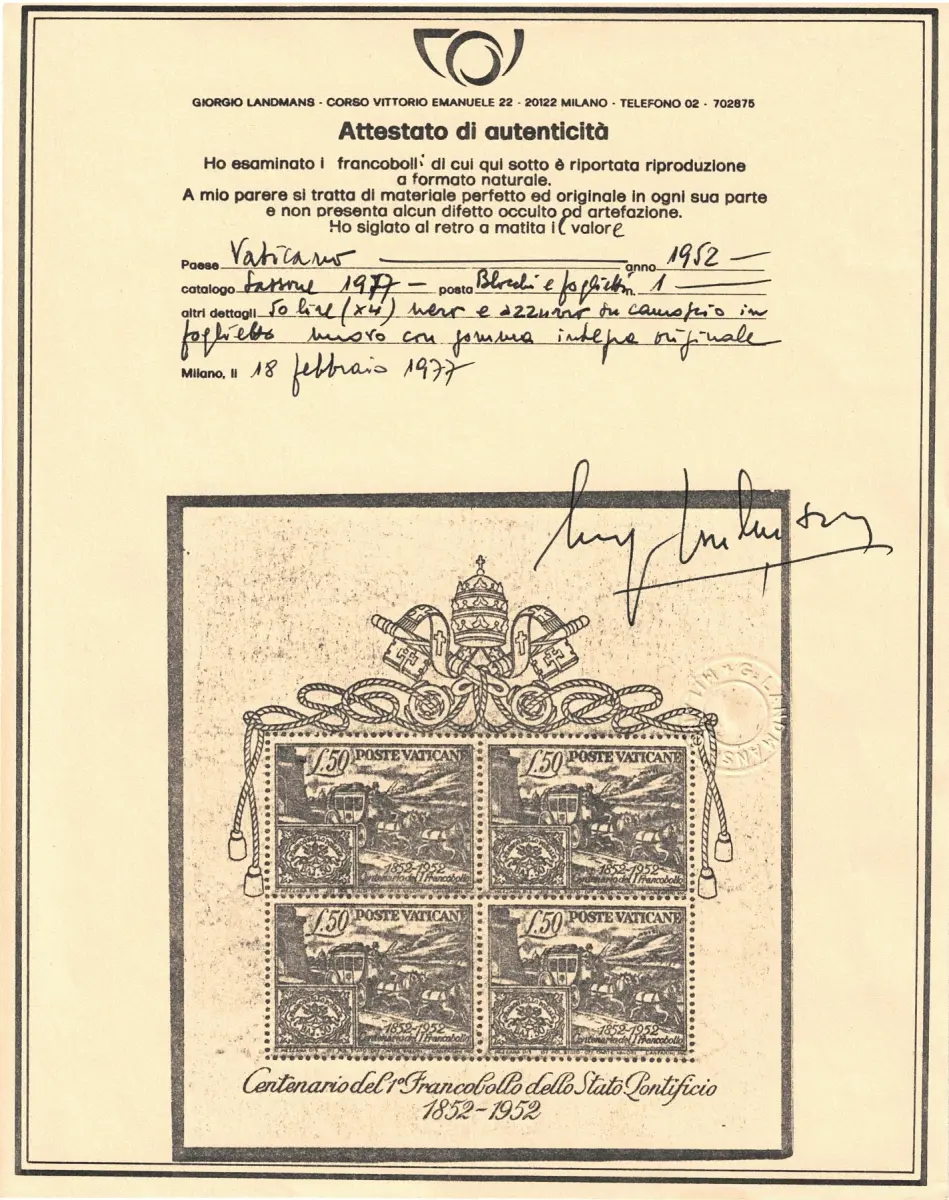 GIORGIO LANDMANS - CORSO VITTORIO EMANUELE 22 - 20122 MILANO - TELEFONO 02 - 702875
Attestato di autenticità
Ho esaminato i francobolli di cui qui sotto è riportata riproduzione
a formato naturale.
A mio parere si tratta di materiale perfetto ed originale in ogni sua parte
e non presenta alcun difetto occulto od artefazione.
Ho siglato al retro a matita il valore
Paese Vaticano anno 1952
catalogo Sassone 1977 - posta Blocchi e foglietti n. 1
altri dettagli 50 lire (x4) nero e azzurro su camoscio in
foglietto nuovo con gomma integra originale
Milano, li 18 febbraio 1977
£.50 POSTE VATICANE £.50 POSTE VATICANE
1852-1952 1852-1952
Centenario del 1° Francobollo Centenario del 1° Francobollo
£.50 POSTE VATICANE £.50 POSTE VATICANE
1852-1952 1852-1952
Centenario del 1° Francobollo Centenario del 1° Francobollo
Centenario del 1° Francobollo dello Stato Pontificio
1852-1952